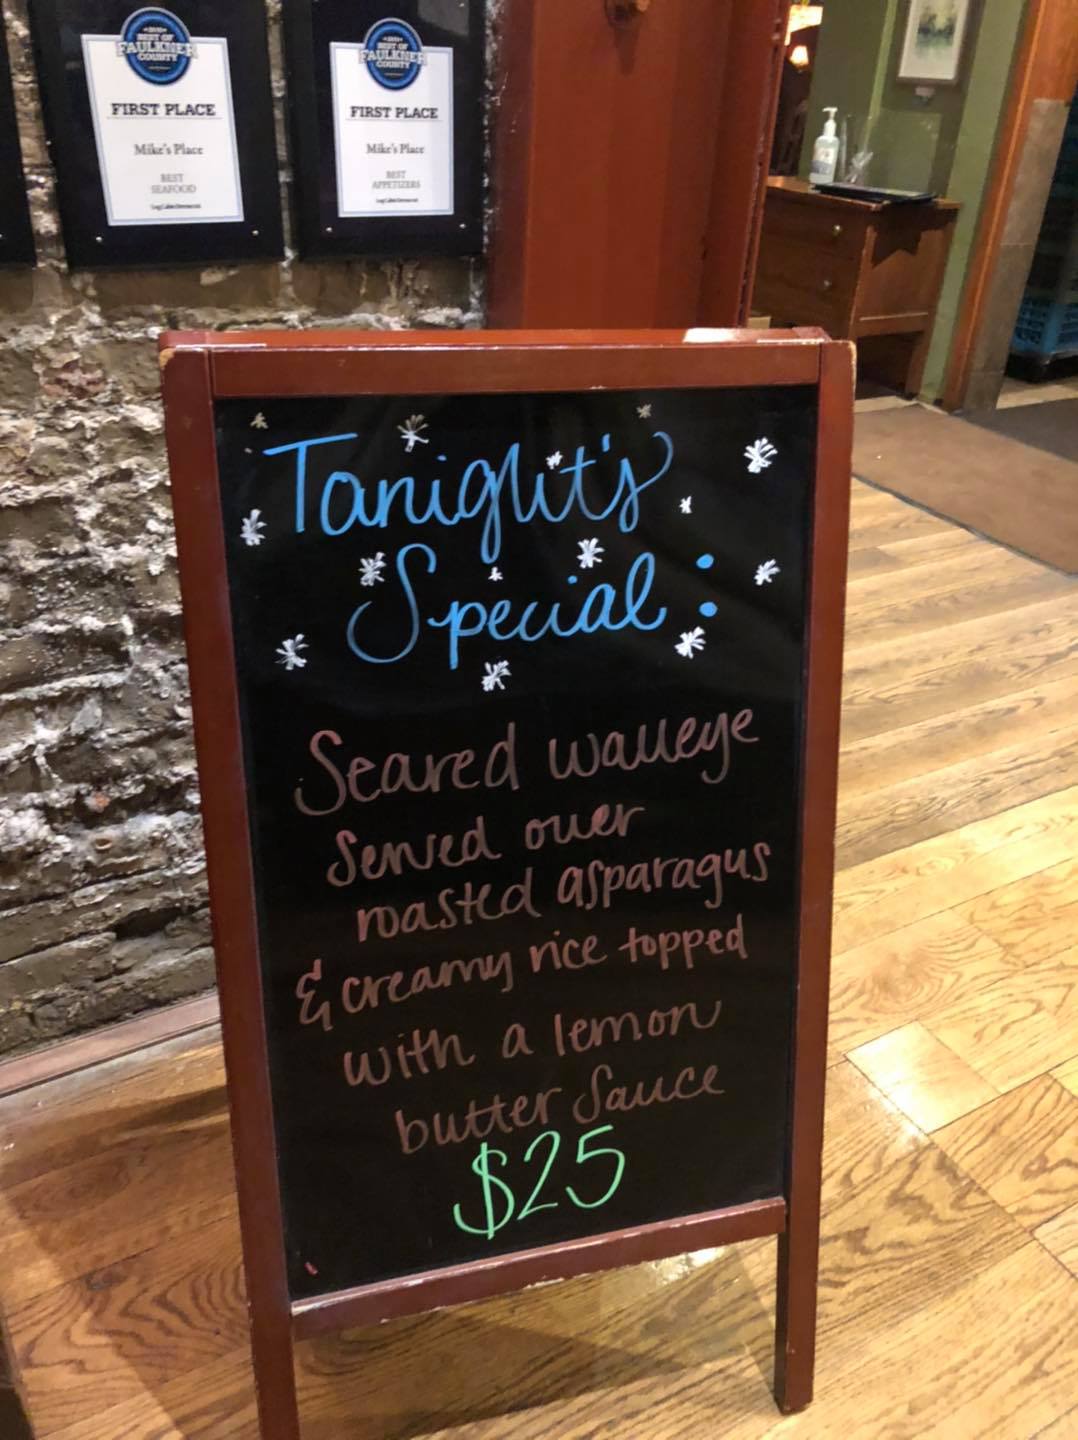 BEST OF
FAULKNER
COUNTY
FIRST PLACE
Mike's Place
BEST
SEAFOOD
BEST OF
FAULKNER
COUNTY
FIRST PLACE
Mike's Place
BEST
APPETIZERS
Tonight's
Special:
Seared walleye
Served over
roasted asparagus
& creamy rice topped
with a lemon
butter Sauce
$25